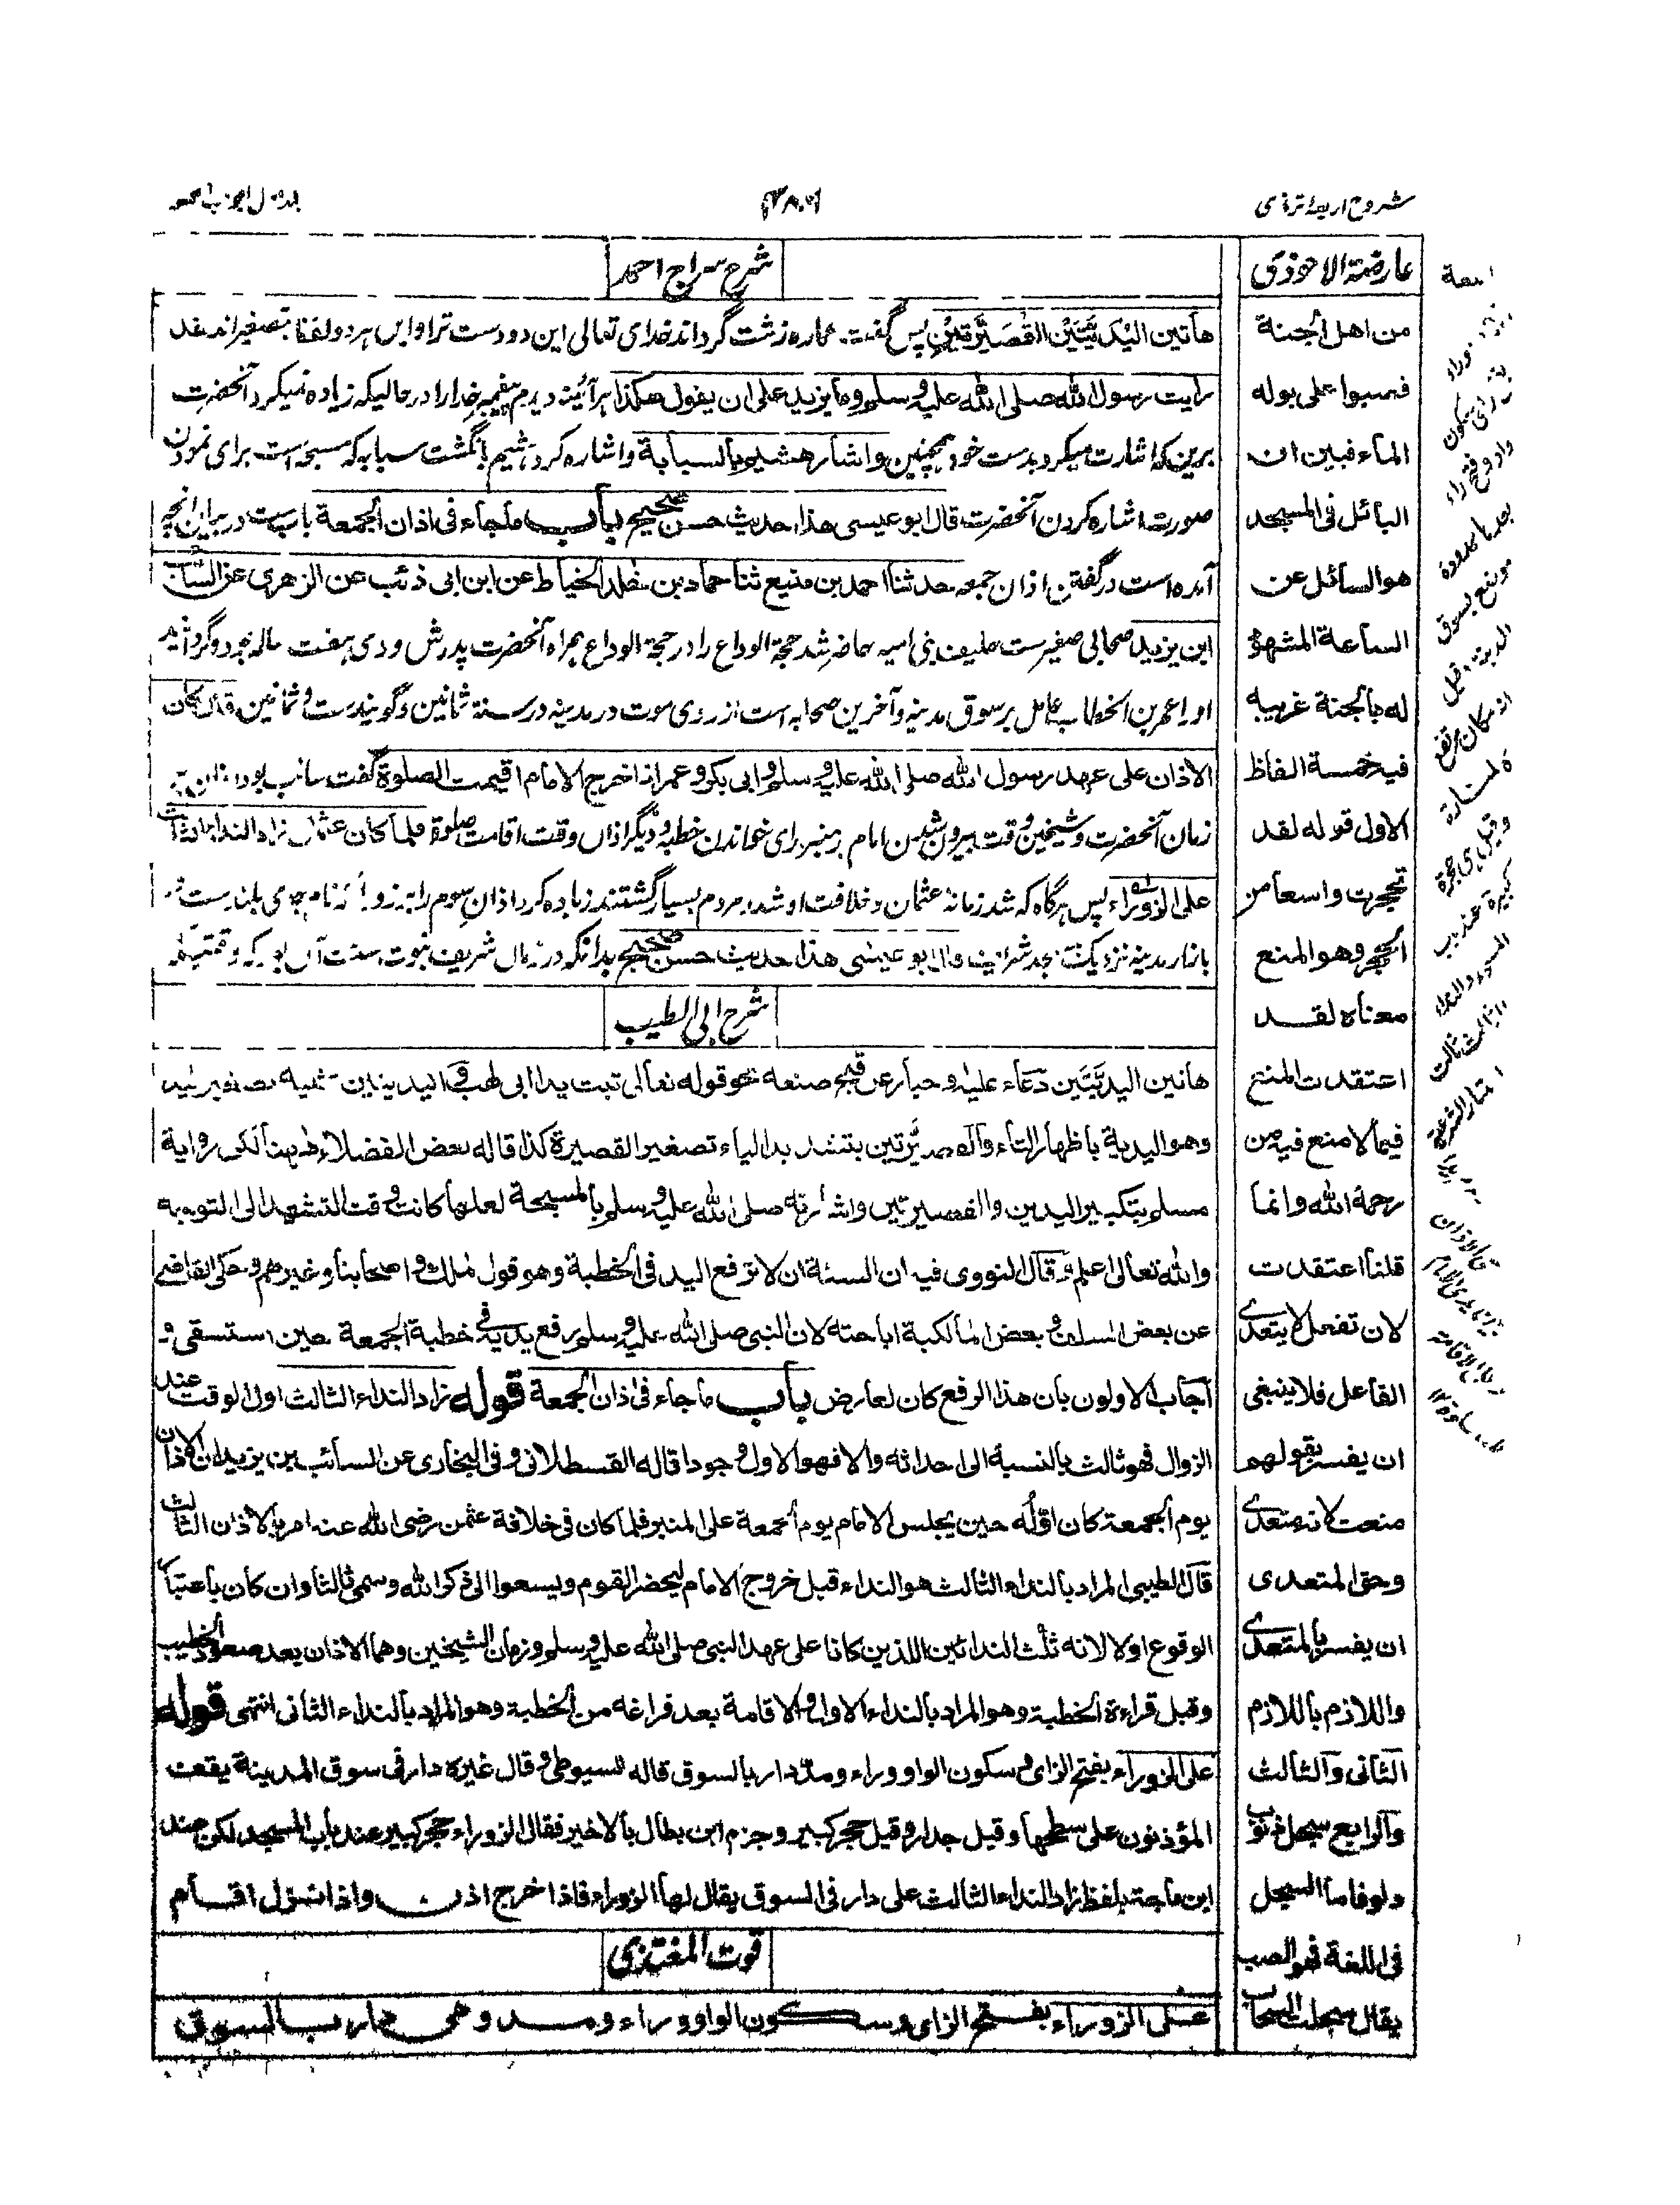 شروح اربعہ ترمذی
عارضة الاحوذی
من اهل الجنة
فصبوا علی بوله
الماء فبین ان
البائل فی المسجد
هو السائل عن
الساعة المشهود
له بالجنة غریبه
فیه خمسة الفاظ
الاول قوله لقد
تحجرت واسعا من
الحجر وهو المنع
معناه لقد
اعتقدت المنع
فیما لا منع فیه من
رحمة الله وانما
قلنا اعتقدت
لان تفعل لا یتعدی
الفاعل فلا ینبغی
ان یفسر بقولهم
منعت لانه متعدی
وحق المتعدی
ان یفسر بالمتعدی
واللازم باللازم
الثانی والثالث
والرابع سجل ذنوب
دلو فاما السجل
فی اللغة فهو الصب
یقال سجلت السحاب
شرح سراج احمد
هاتین الیدیتین القصیرتین پس گفت عماره زشت گرداند خدای تعالی این دو دست ترا واین هر دو لفظ بتصغیر اند لقد
رایت رسول الله صلی الله علیه وسلم وما یزید علی ان یقول هکذا هر آئینه دیدم پیغمبر خدا را در حالیکه زیاده نمیکرد آنحضرت
برین که اشارت میکرد بدست خود همچنین واشار هشیم بالسبابة واشاره کرد هشیم بانگشت سبابه که مسبحه است برای نمودن
صورت اشاره کردن آنحضرت قال ابو عیسی هذا حدیث حسن صحیح باب ما جاء فی اذان الجمعة بابیست در بیان آنچه
آمده است در گفتن اذان جمعه حدثنا احمد بن منیع ثنا حماد بن خالد الخیاط عن ابن ابی ذئب عن الزهری عن السائب
ابن یزید صحابی صغیرست حلیف بنی امیه حاضر شد حجة الوداع را در حجة الوداع همراه آنحضرت پدرش ووی هفت ساله بود وگردانید
او را عمر بن الخطاب عامل بر سوق مدینه وآخرین صحابه است از روی موت در مدینه در سنة ثمانین وگویند ست وثمانین قال کان
الاذان علی عهد رسول الله صلی الله علیه وسلم وابی بکر وعمر اذا خرج الامام اقیمت الصلوة گفت سائب بود اذان
زمان آنحضرت وشیخین وقت بیرون شدن امام بر منبر برای خواندن خطبه ودیگر اذان وقت اقامت صلوة فلما کان عثمان زاد النداء الثالث
علی الزوراء پس هرگاه که شد زمانهٔ عثمان وخلافت او شد مردم بسیار گشتند زیاده کرد اذان سوم را بر زوراء که نام جای بلند ست
بازار مدینه نزدیک مسجد شریف قال ابو عیسی هذا حدیث حسن صحیح بدانکه در زمان شریف نبوت سنت آن بود که وقتیکه
شرح ابی الطیب
هاتین الیدیتین دعاء علیه وخبار عن قبح صنعه نحو قوله تعالی تبت یدا ابی لهب والیدیتین تثنیه تصغیر ید
وهو الیدیة باظهار التاء والقصیرتین بتشدید الیاء تصغیر القصیرة کذا قاله بعض الفضلاء ههنا لکن روایة
مسلم بتکبیر الیدین والقصیرتین واشارته صلی الله علیه وسلم بالمسبحة لعلها کانت وقت التشهد الی التوحید
والله تعالی اعلم قال النووی فیه ان السنة ان لا ترفع الید فی الخطبة وهو قول مالک واصحابنا وغیرهم وحکی القاضی
عن بعض السلف وبعض المالکیة اباحته لان النبی صلی الله علیه وسلم رفع یدیه فی خطبة الجمعة حین استسقی و
اجاب الاولون بان هذا الرفع کان لعارض باب ما جاء فی اذان الجمعة قوله زاد النداء الثالث اول الوقت عند
الزوال فهو ثالث بالنسبة الی احداثه والا فهو الاول وجودا قاله القسطلانی وفی البخاری عن السائب بن یزید ان الاذان
یوم الجمعة کان اوله حین یجلس الامام یوم الجمعة علی المنبر فلما کان فی خلافة عثمن رضی الله عنه امر بالاذان الثالث
قال الطیبی المراد بالنداء الثالث هو النداء قبل خروج الامام لیحضر القوم ویسعوا الی ذکر الله وسمی ثالثا وان کان باعتبار
الوقوع اولا لانه ثالث الندائین اللذین کانا علی عهد النبی صلی الله علیه وسلم وزمان الشیخین وهما الاذان بعد صعود الخطیب
وقبل قراءة الخطبة وهو المراد بالنداء الاول والاقامة بعد فراغه من الخطبة وهو المراد بالنداء الثانی انتهی قوله
علی الزوراء بفتح الزای وسکون الواو وراء ومد دار بالسوق قاله السیوطی وقال غیره دار فی سوق المدینة یقف
المؤذنون علی سطحها وقیل جدار وقیل حجر کبیر وجزم ابن بطال بالاخیر فقال الزوراء حجر کبیر عند باب المسجد لکن عند
ابن ماجة بلفظ زاد النداء الثالث علی دار فی السوق یقال لها الزوراء فاذا خرج اذن واذا نزل اقام
قوت المغتذی
علی الزوراء بفتح الزای وسکون الواو وراء ومد وهی دار بالسوق